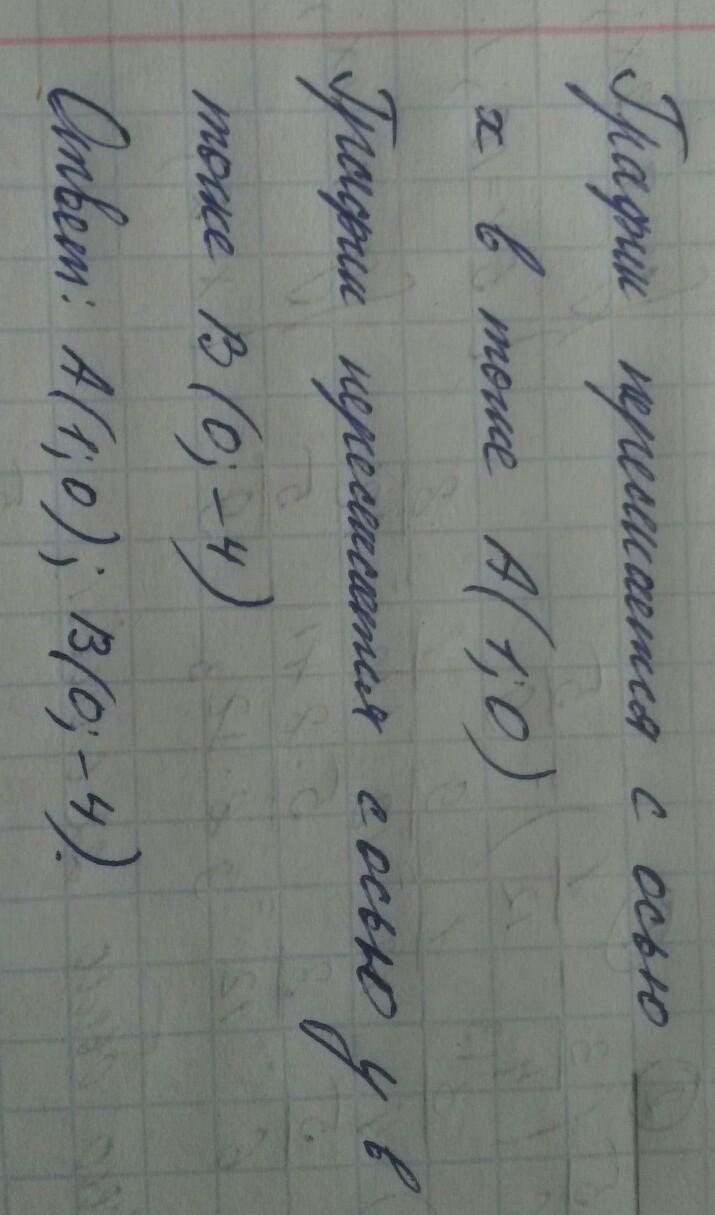 График пересикается с осью
х в тоже А(1; 0)
График пересикается с осью у в
тоже В(0; -4)
Ответ: А(1; 0); В(0; -4).